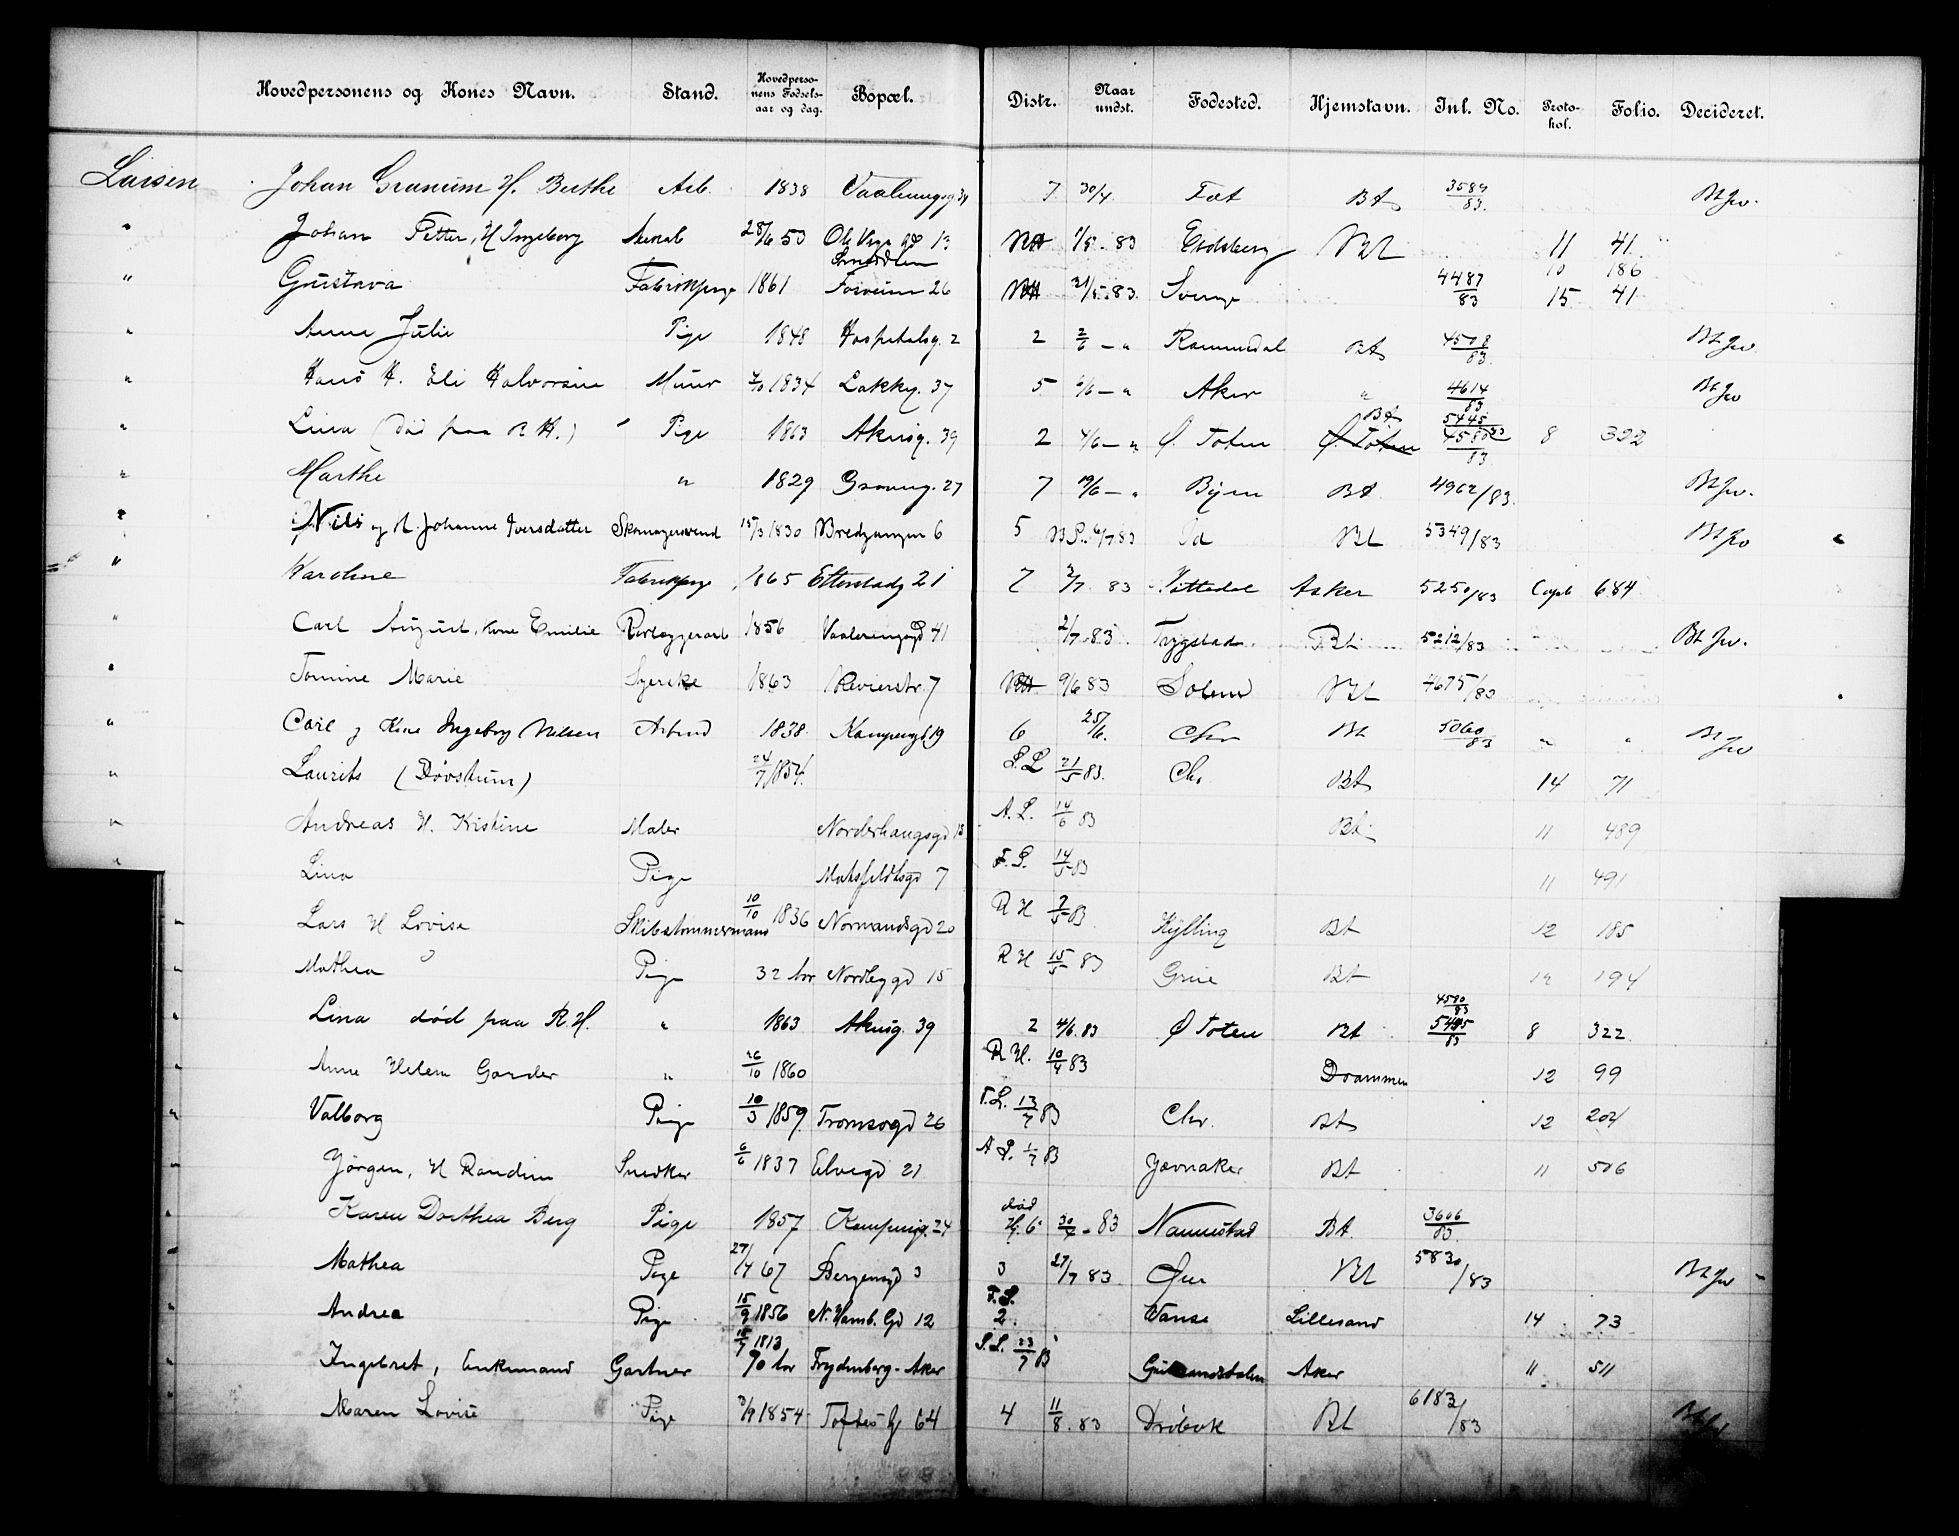 Hovedpersonens og Kones Navn. Stand. Hovedpersonens Fødselsaar og dag. Bopæl. Distr. Naar undst. Fødested. Hjemstavn. Inl. No. Protokol. Folio. Decideret.
Larsen Johan Granum H. Berthe Arb. 1838 Vaalerengg 7 30/4 Fet Bt 3589/83 Bt Jw.
" Johan Petter, H Ingeborg 28/6 53 13 1/5 83 Eidsberg Bt 11 41
" Gustava Fabrikpige 1861 26 21/5 83 Sverige 4487/83 10 186 15 41
" Anne Julie Pige 1848 Hospitalsg. 2 2 2/6 — " Romsdal Bt 83 Bt Jw
" Hans H. Eli Halvorsen Murer 1834 Lakkeg. 37 5 6/6 — " Aker " 4614/83 Bt Jw
" Lina (død paa R.H.) Pige 1863 Akersg. 39 2 4/6 — " Ø. Toten Ø. Toten Bt 5445/83 4580/83 8 322
" Marthe " 1829 Grønneg. 27 7 19/6 — " Byen Bt 4962/83 Bt Jw.
" Nils og H. Johanne Iversdatter Skomagersvend 15/3 1830 Bredgangen 6 5 6/7 83 Bt 5349/83 Bt Jw
" Karoline Fabrikpige 1865 Etterstadg 21 7 2/7 83 Nittedal Asker 5250/83 684
" Carl August, Kone Emilie Rørlæggerarb 1856 Vaalerenggd 41 2/7 83 Trygstad Bt 5212/83 Bt Jw.
" Tomine Marie Syerske 1863 Revierstr. 7 9/6 83 Bt 4675/83
" Carl og Kone Ingeborg Nilsen Arbmd 1838 Kampengd 19 6 25/6. Chr Bt 5060/83 " " Bt Jw
" Laurits (Døvstum) 24/7 1854. S.L 21/5 83. Chr. Bt 14 71
" Andreas H. Kristine Maler Norderhaugsgd 13 A. L. 14/6 83 Bt 11 489
" Lina Pige Motzfeldtsgd 7 F. L. 14/5 83 11 491
" Lars H Lovise Skibstømmermand 10/10 1836 Normandsgd 20 R H 7/5 83 Hylling Bt 12 185
" Mathea Pige 32 Aar Nordbygd 15 R H 15/5 83 Grue Bt 12 194
" Lina død paa R.H. " 1863 Akersg. 39 2 4/6. 83 Ø Toten Bt 4580/83 5445/83 8 322.
" Anne Helene Garder " 26/10 1860 R H. 10/4 83 Drammen 12 99
" Valborg Pige 10/3 1859. Tromsøgd 26 T.L. 13/7 83 Chr. Bt 12 204
" Jørgen, H Randine Snedker 6/6 1837 Elvegd 21 A L. 1/7 83 Jevnaker Bt 11 506
" Karen Dorthea Berg Pige 1857 Kampensg. 24 død Hj. 6 30/4 - 83 Nannestad Bt 3606/83
" Mathea Pige 27/4 67 Bergensgd 3 3 27/7 83 Bt 5830/83 Bt Jw
" Andrea Pige 15/9 1856 N. Hamb. Gd 12 F. L. 2. Vanse Lillesand 14 73
" Ingebret, Enkemand Gartner 15/7 1813 70 Aar Frydenberg - Aker S. L. 23/7 83 Aker 11 511
Maren Lovise Pige 3/9 1854 Toftes G 64 4 11/8. 83 Drøbak Bt 6183/83 Bt Jw